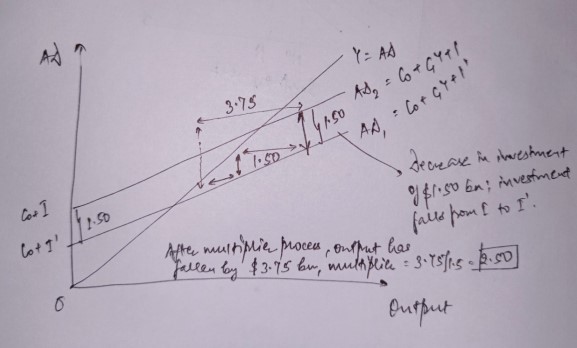 AD
Y = AD
AD₂ = C₀ + C₁Y + I
AD₁ = C₀ + C₁Y + I'
3.75
1.50
1.50
C₀+I
1.50
C₀+I'
Decrease in investment
of $1.50 bn; investment
falls from I to I'.
After multiplier process, output has
fallen by $3.75 bn, multiplier = 3.75/1.5 = 2.50
O
Output